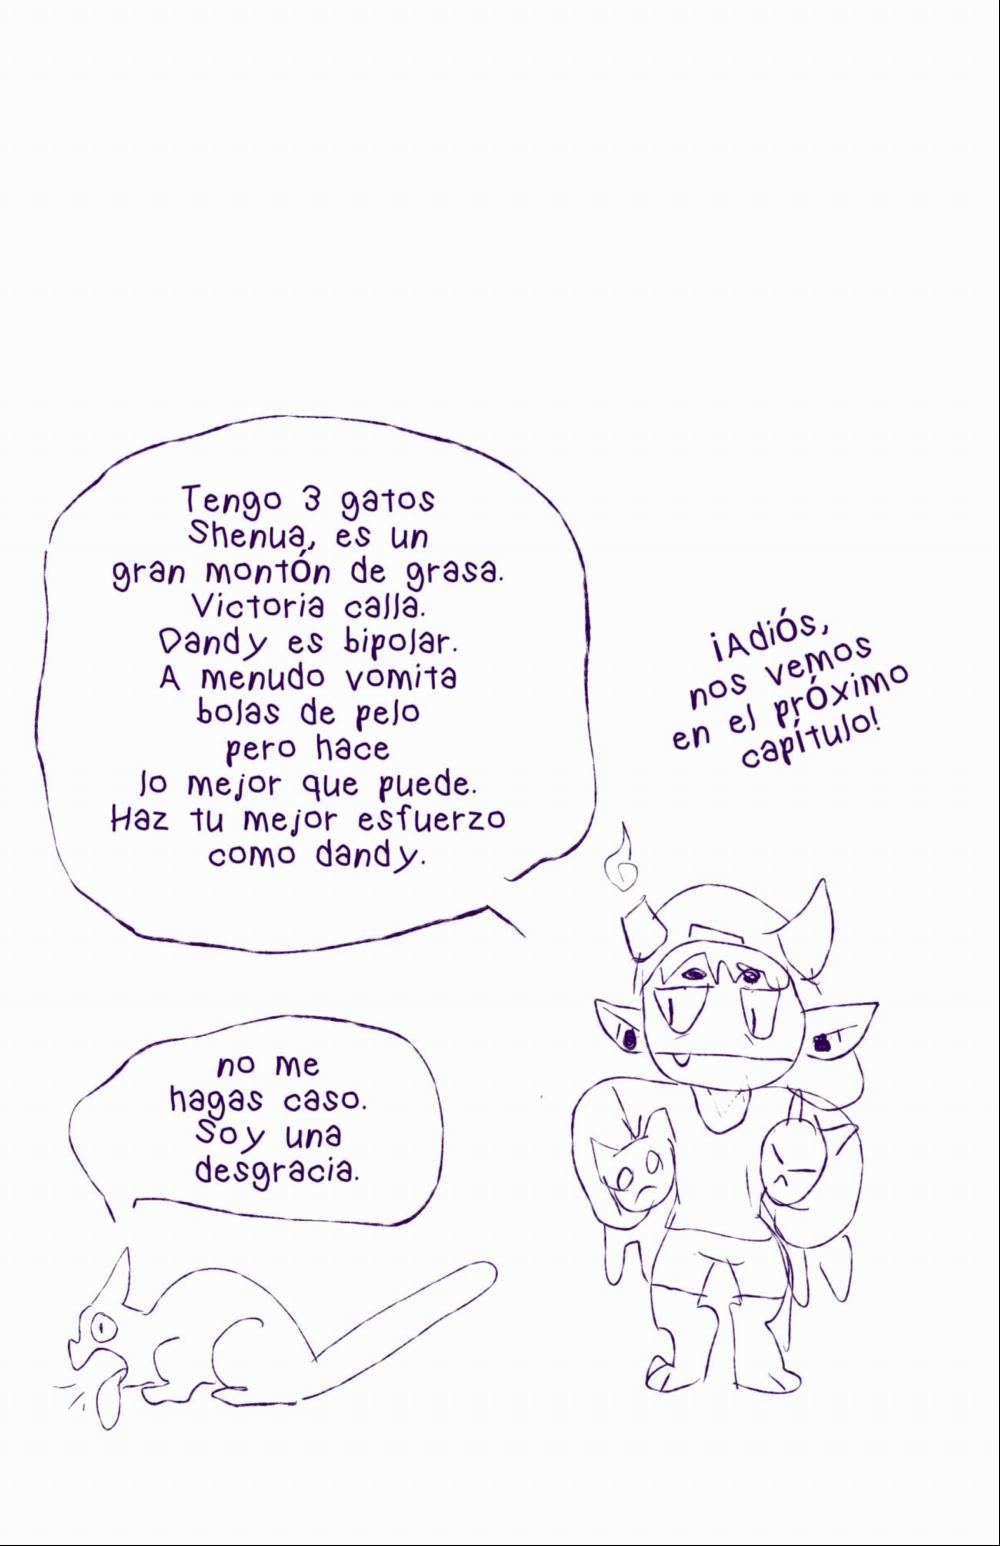 Tengo 3 gatos
Shenua, es un
gran montÓn de grasa.
Victoria calla.
Dandy es bipolar.
A menudo vomita
bolas de pelo
pero hace
lo mejor que puede.
Haz tu mejor esfuerzo
como dandy.
¡AdiÓs,
nos vemos
en el prÓximo
capítulo!
no me
hagas caso.
Soy una
desgracia.